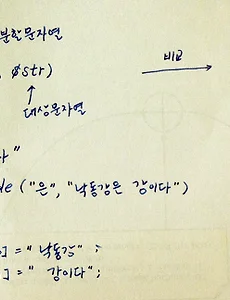 분할문자열
, $str)
비교
↑
대상문자열
라"
de ("은", "낙동강은 강이다")
] = "낙동강" ;
] = " 강이다";